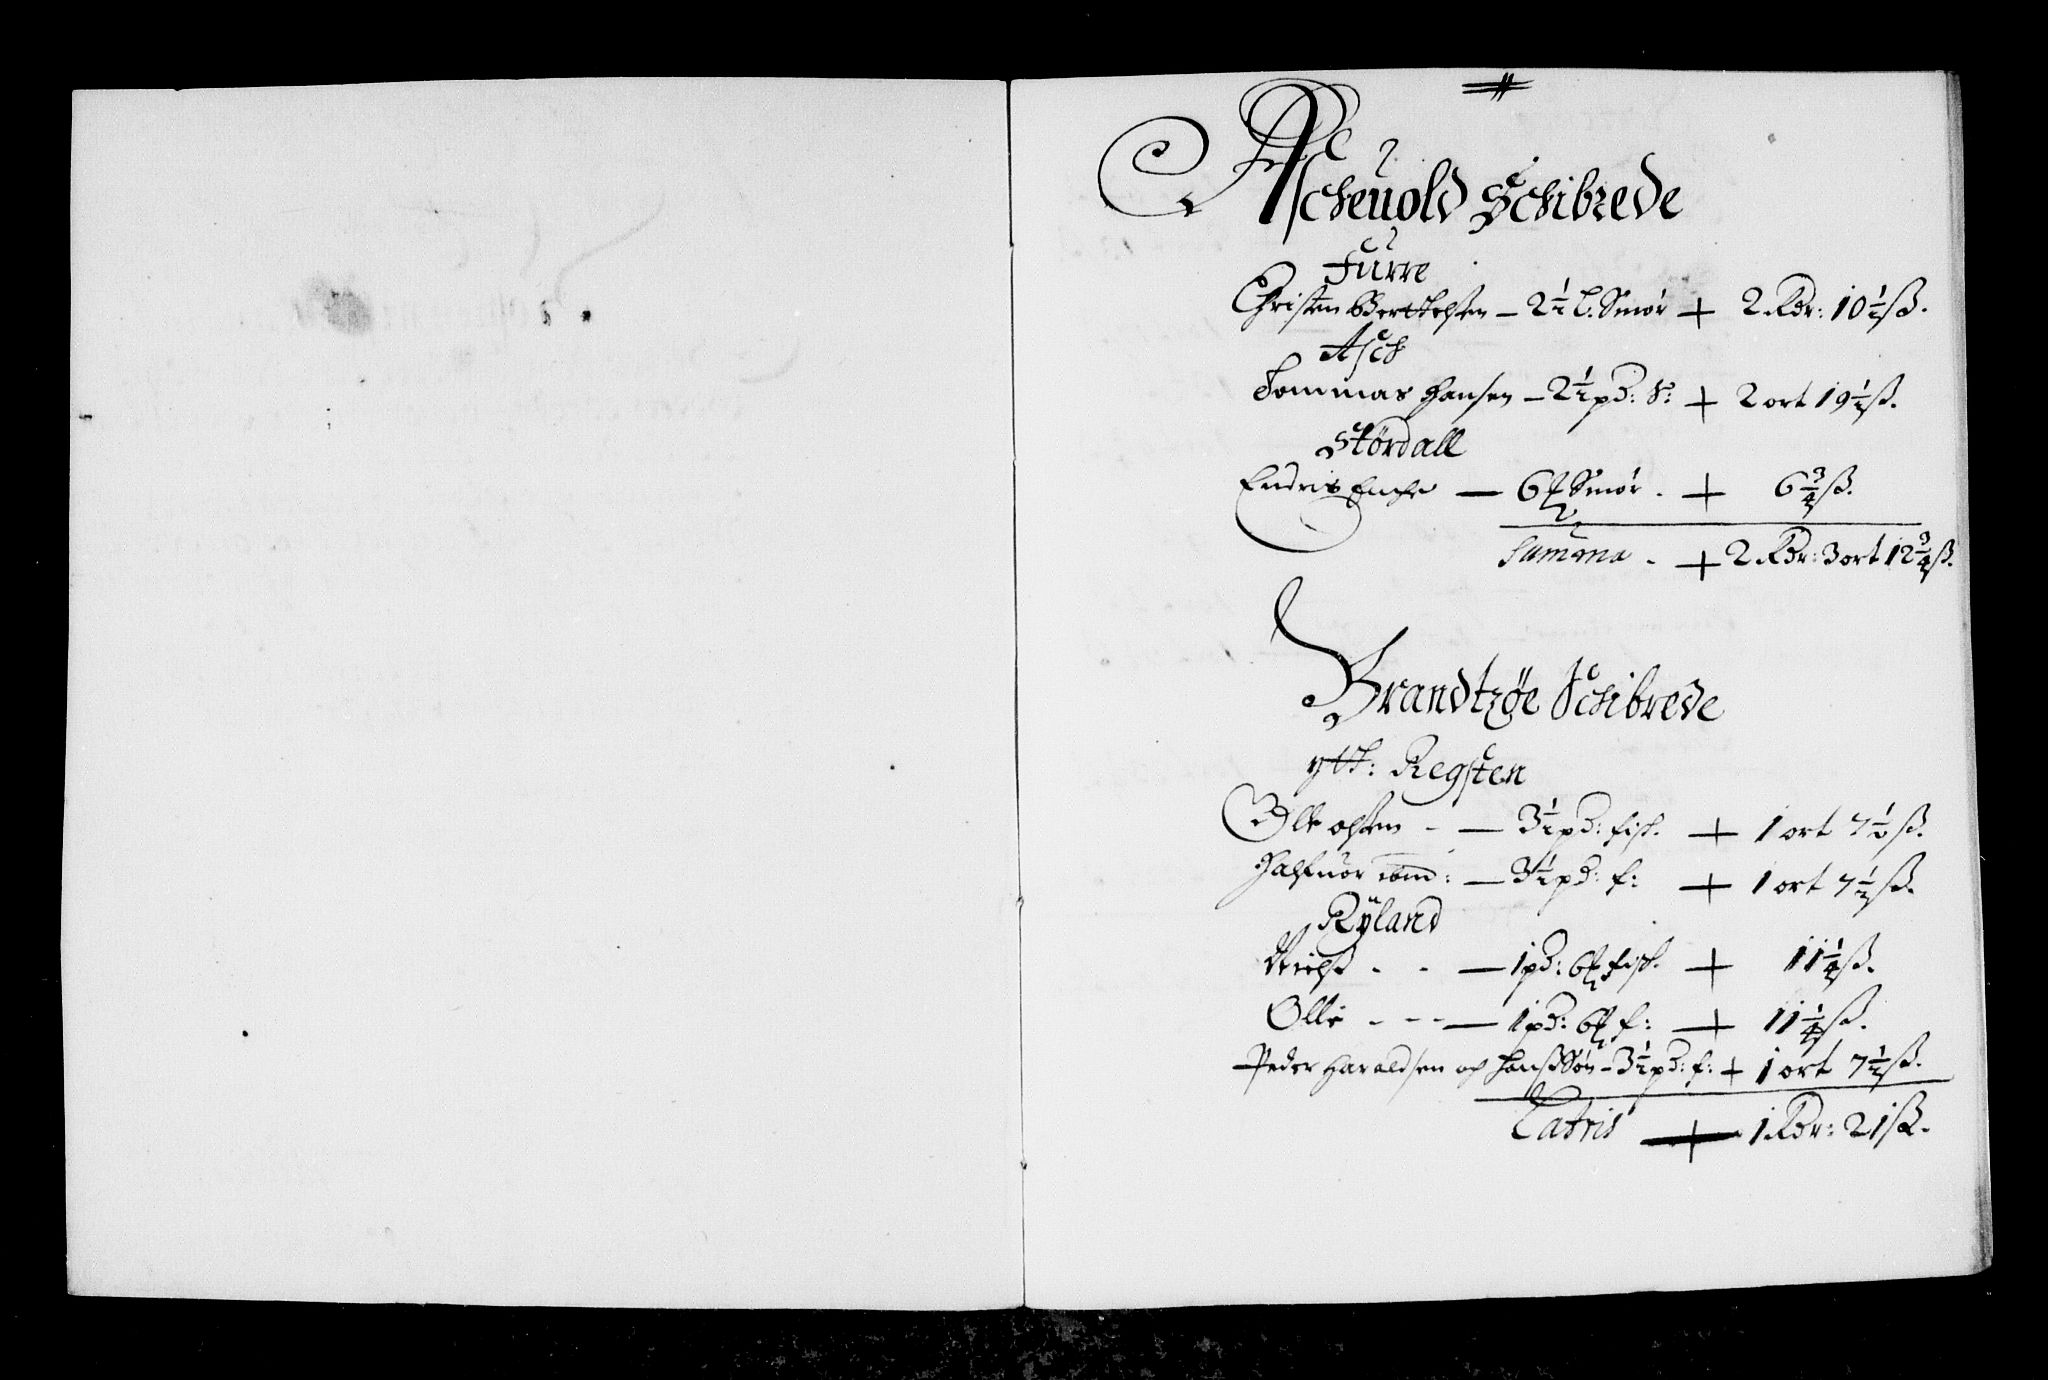 Ascheuold Schibrede
Furre
Christen Bertelsen — 2½ l. Smør + 2 Rdr: 10½ ß.
Asch
Tommas Hansen — 2½ pd: S: + 2 ort 19½ ß.
Stördall
Endris Enche — 6 Smør. + 6¾ ß.
Summa - + 2 Rdr: 3 ort 12¾ ß.
Brandtzøe Schibrede
ytt: Regsten
Olle olsen - — 3½ pd: fisk. + 1 ort 7½ ß.
Halfuor ibm: — 3½ pd: f: + 1 ort 7½ ß.
Ryland
Nielß - - — 1 pd: 6 fisk. + 11¼ ß.
Olle - - - — 1 pd: 6 f: + 11¼ ß.
Peder Haraldsen och hanß Søn — 3½ pd: f: + 1 ort 7½ ß.
Latris + 1 Rdr: 21 ß.